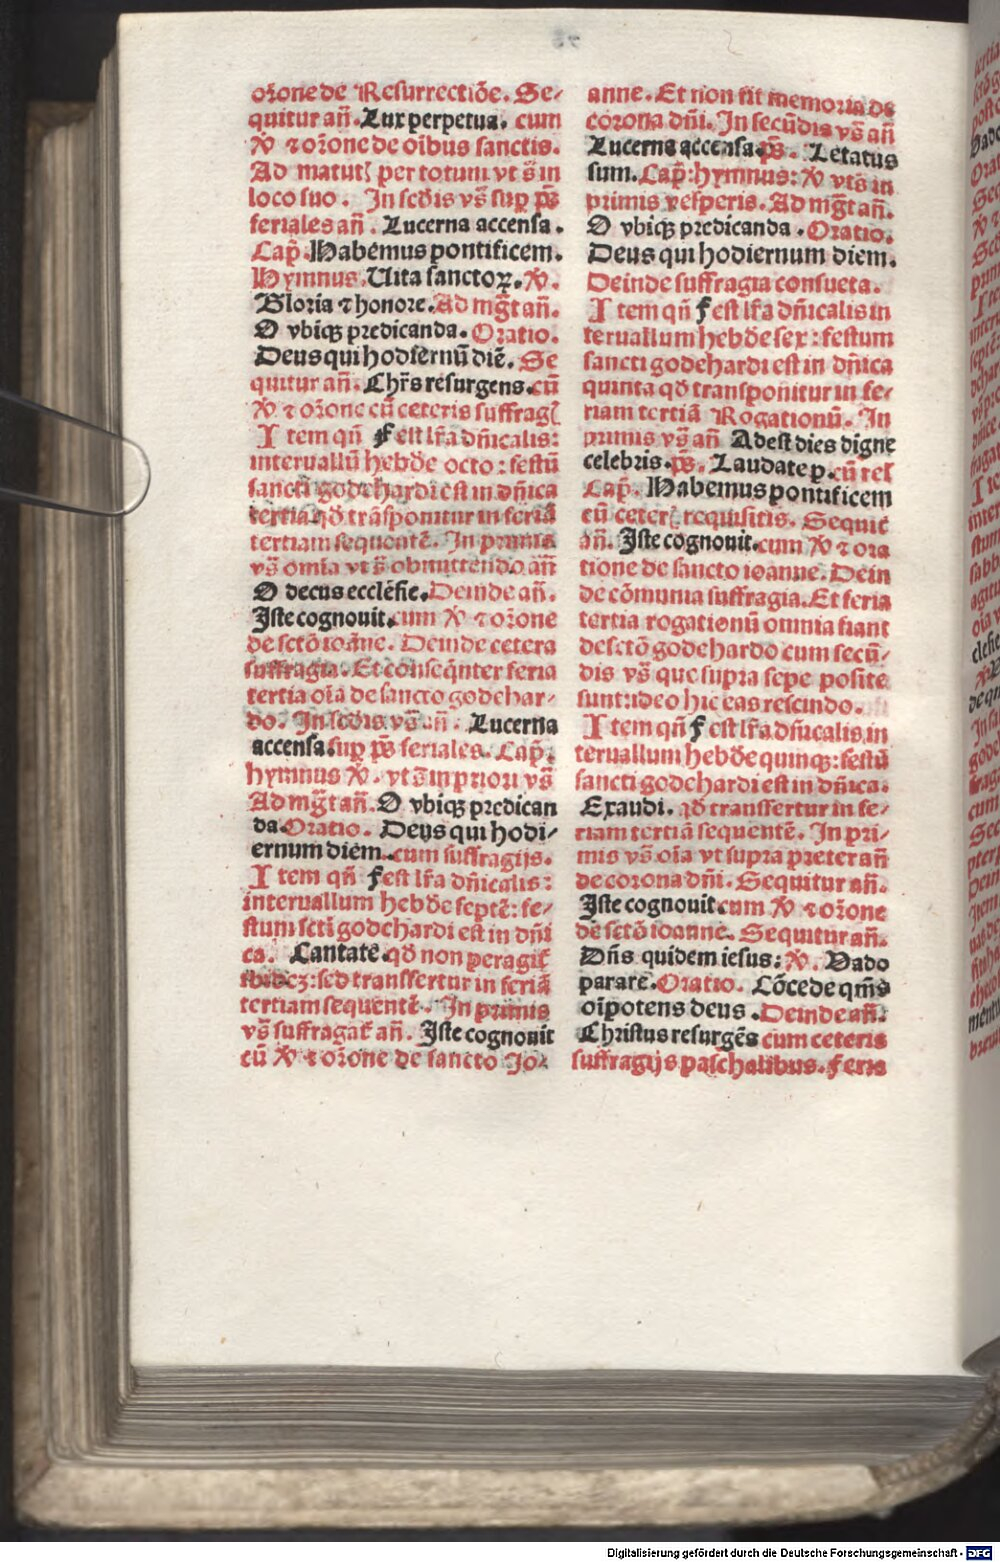 oꝛone de Resurrectiõe. Se⸗
quitur añ. Lux perpetua. cum
℣ ⁊ oꝛone de oībus sanctis.
Ad matut̄ per totum vt s̄ in
loco suo. In scd̄is vs̄ sup ps̄
feriales añ. Lucerna accensa.
Cap̄. Habemus pontificem.
Hymnus. Uita sanctoꝝ. ℣.
Gloria ⁊ honore. Ad mg̃t añ.
O vbiqꝫ predicanda. Oratio.
Deus qui hodiernū diē. Se
quitur añ. Chr̄s resurgens. cū
℣ ⁊ oꝛone cū ceteris suffraḡ
Item qñ F est lr̄a dñicalis:
interuallū hebd̄e octo: festū
sancti godehardi est in dñica
tertia qd̄ trāsponitur in feriā
tertiam sequentē. In primis
vs̄ omīa vt s̄ obmittendo añ
O decus ecclēsie. Deinde añ.
Iste cognouit. cum ℣ ⁊ oꝛone
de sctō ioāne. Deinde cetera
suffragia. Et cōseqūnter feria
tertia oīa de sancto godehar⸗
do. In scd̄is vs̄ añ. Lucerna
accensa. sup ps̄ feriales. Cap̄.
hymnus ℣. vt s̄ in priori vs̄
Ad mg̃t añ. O vbiqꝫ predican
da. Oratio. Deus qui hodi⸗
ernum diem. cum suffragijs.
Item qñ F est lr̄a dñicalis:
interuallum hebd̄e septē: fe⸗
stum scti godehardi est in dñi
ca. Cantate. qd̄ non peragit̄
ibideꝫ: sed transfertur in feriā
tertiam sequentē. In primis
vs̄ suffragat̄ añ. Iste cognouit
cū ℣ ⁊ oꝛone de sancto Jo⸗
anne. Et non fit memoria de
corona dñi. In secūdis vs̄ añ
Lucerna accensa. ps̄. Letatus
sum. Cap̄: hymnus: ℣ vts̄ in
primis vesperis. Ad mg̃t añ.
O vbiqꝫ predicanda. Oratio.
Deus qui hodiernum diem.
Deinde suffragia consueta.
Item qñ F est lr̄a dñicalis in
teruallum hebd̄e sex: festum
sancti godehardi est in dñica
quinta qd̄ transponitur in fe⸗
riam tertiā Rogationū. In
primis vs̄ añ Adest dies digne
celebris. ps̄. Laudate p. cū rel
Cap̄. Habemus pontificem
cū ceter̄ requisitis. Sequit̄
añ. Iste cognouit. cum ℣ ⁊ ora
tione de sancto ioanne. Dein
de cōmunia suffragia. Et feria
tertia rogationū omnia fiant
de sctō godehardo cum secū⸗
dis vs̄ que supra sepe posite
sunt: ideo hic eas rescindo.
Item qñ F est lr̄a dñicalis in
teruallum hebd̄e quinqꝫ: festū
sancti godehardi est in dñica.
Exaudi. qd̄ transfertur in fe⸗
riam tertiā sequentē. In pri⸗
mis vs̄ oīa vt supra preter añ
de corona dñi. Sequitur añ.
Iste cognouit. cum ℣ ⁊ oꝛone
de sctō ioanne. Sequitur añ.
Dñs quidem iesus: ℣. Vado
parare. Oratio. Cōcede qm̄s
oīpotens deus. Deinde añ.
Christus resurgēs cum ceteris
suffragijs paschalibus. Feria
Digitalisierung gefördert durch die Deutsche Forschungsgemeinschaft - DFG